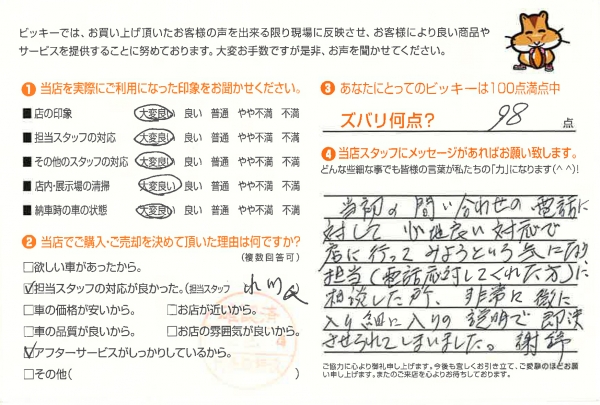 ビッキーでは、お買い上げ頂いたお客様の声を出来る限り現場に反映させ、お客様により良い商品や
サービスを提供することに努めております。大変お手数ですが是非、お声を聞かせてください。
1 当店を実際にご利用になった印象をお聞かせください。
■店の印象 大変良い 良い 普通 やや不満 不満
■担当スタッフの対応 大変良い 良い 普通 やや不満 不満
■その他のスタッフの対応 大変良い 良い 普通 やや不満 不満
■店内・展示場の清掃 大変良い 良い 普通 やや不満 不満
■納車時の車の状態 大変良い 良い 普通 やや不満 不満
2 当店でご購入・ご売却を決めて頂いた理由は何ですか?
(複数回答可)
□欲しい車があったから。
☑担当スタッフの対応が良かった。(担当スタッフ
□車の価格が安いから。 □お店が近いから。
□車の品質が良いから。 □お店の雰囲気が良いから。
☑アフターサービスがしっかりしているから。
□その他( )
3 あなたにとってのビッキーは100点満点中
ズバリ何点? 98 点
4 当店スタッフにメッセージがあればお願い致します。
どんな些細な事でも皆様の言葉が私たちの「力」になります(^^)!
当初の問い合わせの電話に
対して心地良い対応で
店に行ってみようという気になり
担当(電話応対してくれた方)に
相談した所、非常に微に
入り細に入りの説明で即決
させられてしまいました。謝
ご協力に心より御礼申し上げます。今後も宜しくお引き立て、ご愛顧のほどお願
い申し上げます。またのご来店を心よりお待ちしております。